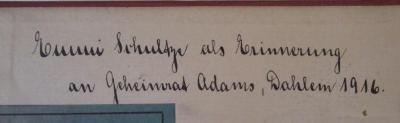 Emmi Schultze als Erinnerung
an Geheimrat Adams, Dahlem 1916.